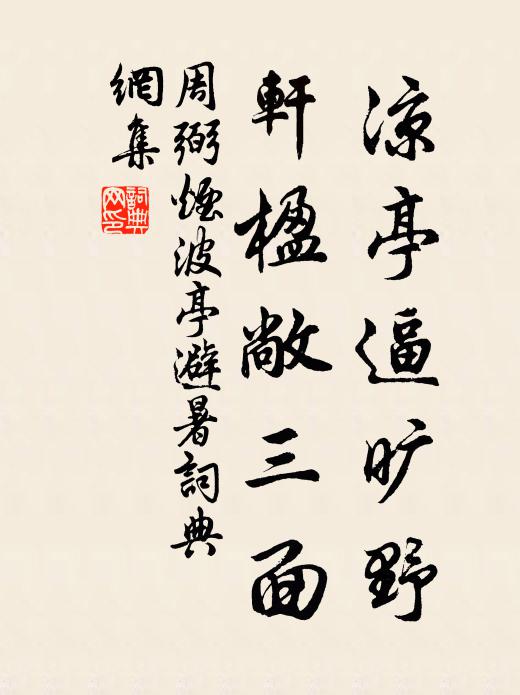 涼亭逼旷野
軒楹敞三面
周弼煙波亭避暑詞典
網集
詞典
网印